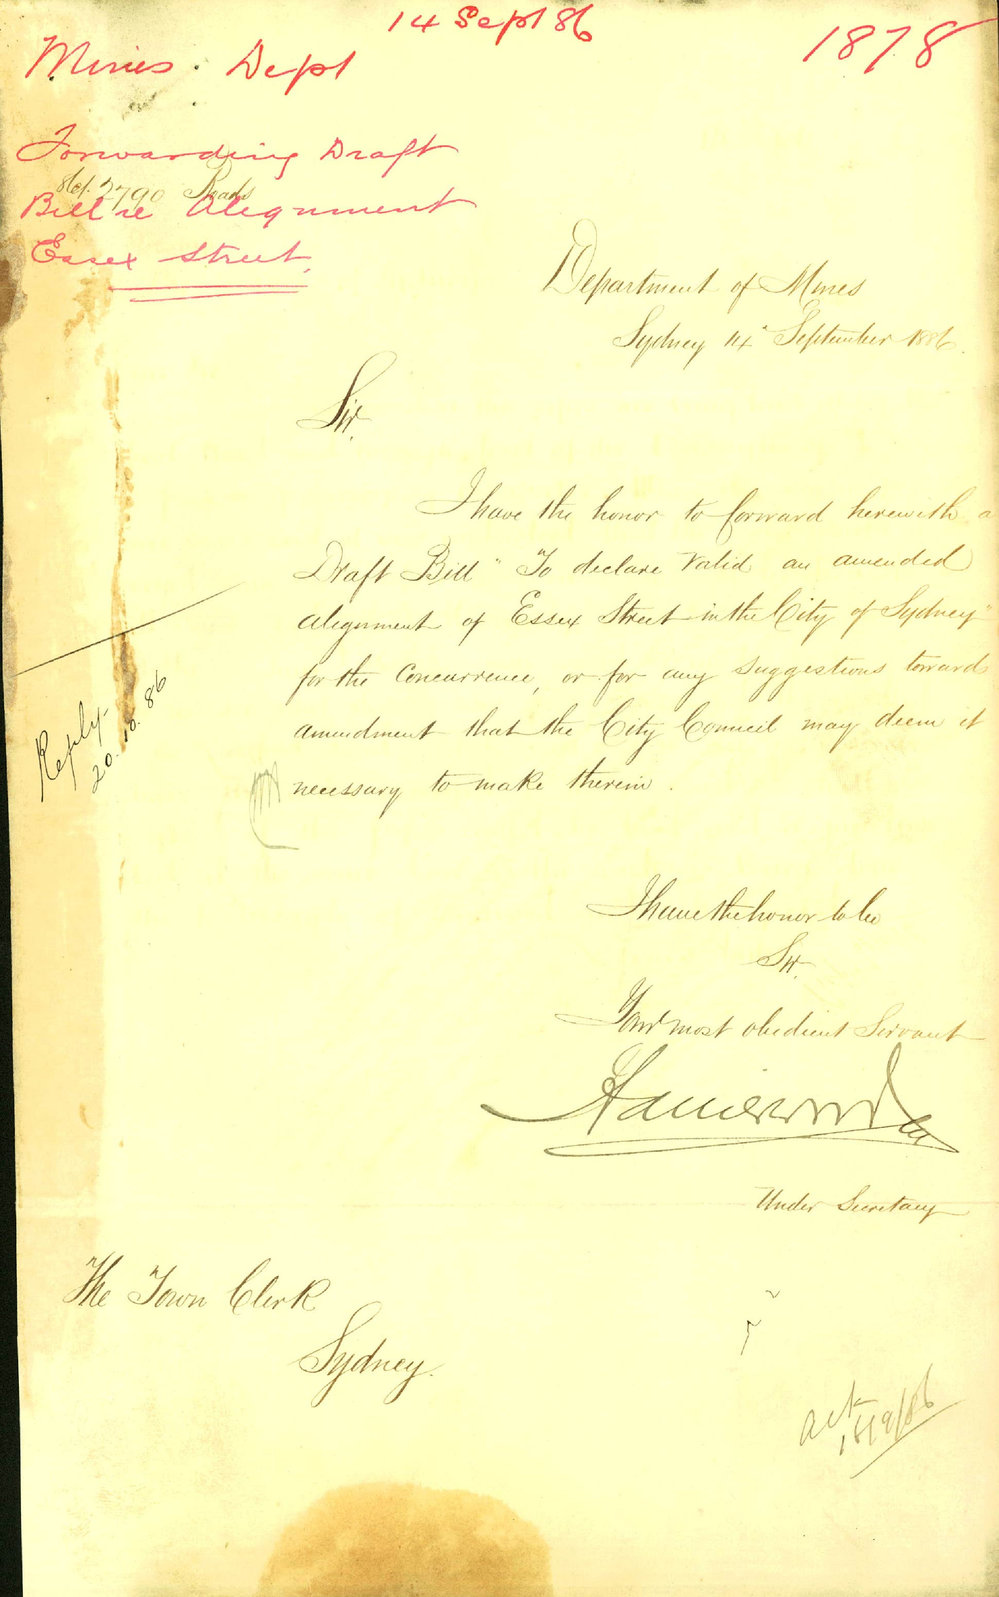 14 Sept 86
1878
Mines Dept
Forwarding Draft
2790 Roads
Bill re Alignment
Essex Street.
Department of Mines
Sydney 14" September 1886.
Sir,
I have the honor to forward herewith a
Draft Bill "To declare Valid an amended
alignment of Essex Street in the City of Sydney"
for the Concurrence, or for any suggestions toward
amendment that the City Council may deem it
necessary to make therein.
Reply
20.10.86
I have the honor to be
Sir
Your most obedient Servant
Under Secretary
The Town Clerk
Sydney.
ack